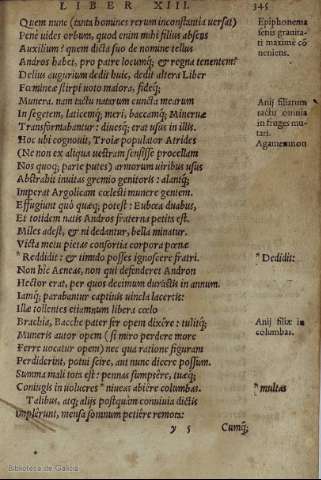 LIBER XIII. 345
Quem nunc (tanta homines rerum inconstantia versat)
Penè vides orbum, quod enim mihi filius absens
Auxilium? quem dicta suo de nomine tellus
Andros habet, pro patre locumq́; & regna tenentem?
Delius augurium dedit huic, dedit altera Liber
Fœmineæ stirpi voto maiora, fideq́;
Munera. nam tactu natarum cuncta mearum
In segetem, laticemq́; meri, baccamq́; Mineruæ
Transformabantur: diuesq́; erat vsus in illis.
Hoc vbi cognouit, Troiæ populator Atrides
(Ne non ex aliqua vestram sensisse procellam
Nos quoq́; parte putes) armorum viribus vsus
Abstrahit inuitas gremio genitoris: alantq́;
Imperat Argolicam cœlesti munere gentem.
Effugiunt quò quæq; potest: Eubœa duabus,
Et totidem natis Andros fraterna petita est.
Miles adest, & ni dedantur, bella minatur.
Victa metu pietas consortia corpora pœnæ
" Reddidit: & timido posses ignoscere fratri.
Non hîc Aeneas, non qui defenderet Andron
Hector erat, per quos decimum duràstis in annum.
Iamq́; parabantur captiuis vincla lacertis:
Illæ tollentes etiamnum libera cœlo
Brachia, Bacche pater fer opem dixére: tulitq́;
Muneris autor opem (si miro perdere more
Ferre vocatur opem) nec qua ratione figuram
Perdiderint, potui scire, aut nunc dicere possum.
Summa mali nota est: pennas sumpsére, tuæq́;
Coniugis in volucres " niueas abière columbas.
Talibus, atq; alijs postquàm conuiuia dictis
Implerunt, mensa somnum petière remota:
y 5 Cumq́;
Epiphonema
senis grauita-
ti maximè cō-
ueniens.
Anij filiarum
tactu omnia
in fruges mu-
tari.
Agamemnon
" Dedidit:
Anij filiæ in
columbas.
" multas
Biblioteca de Galicia